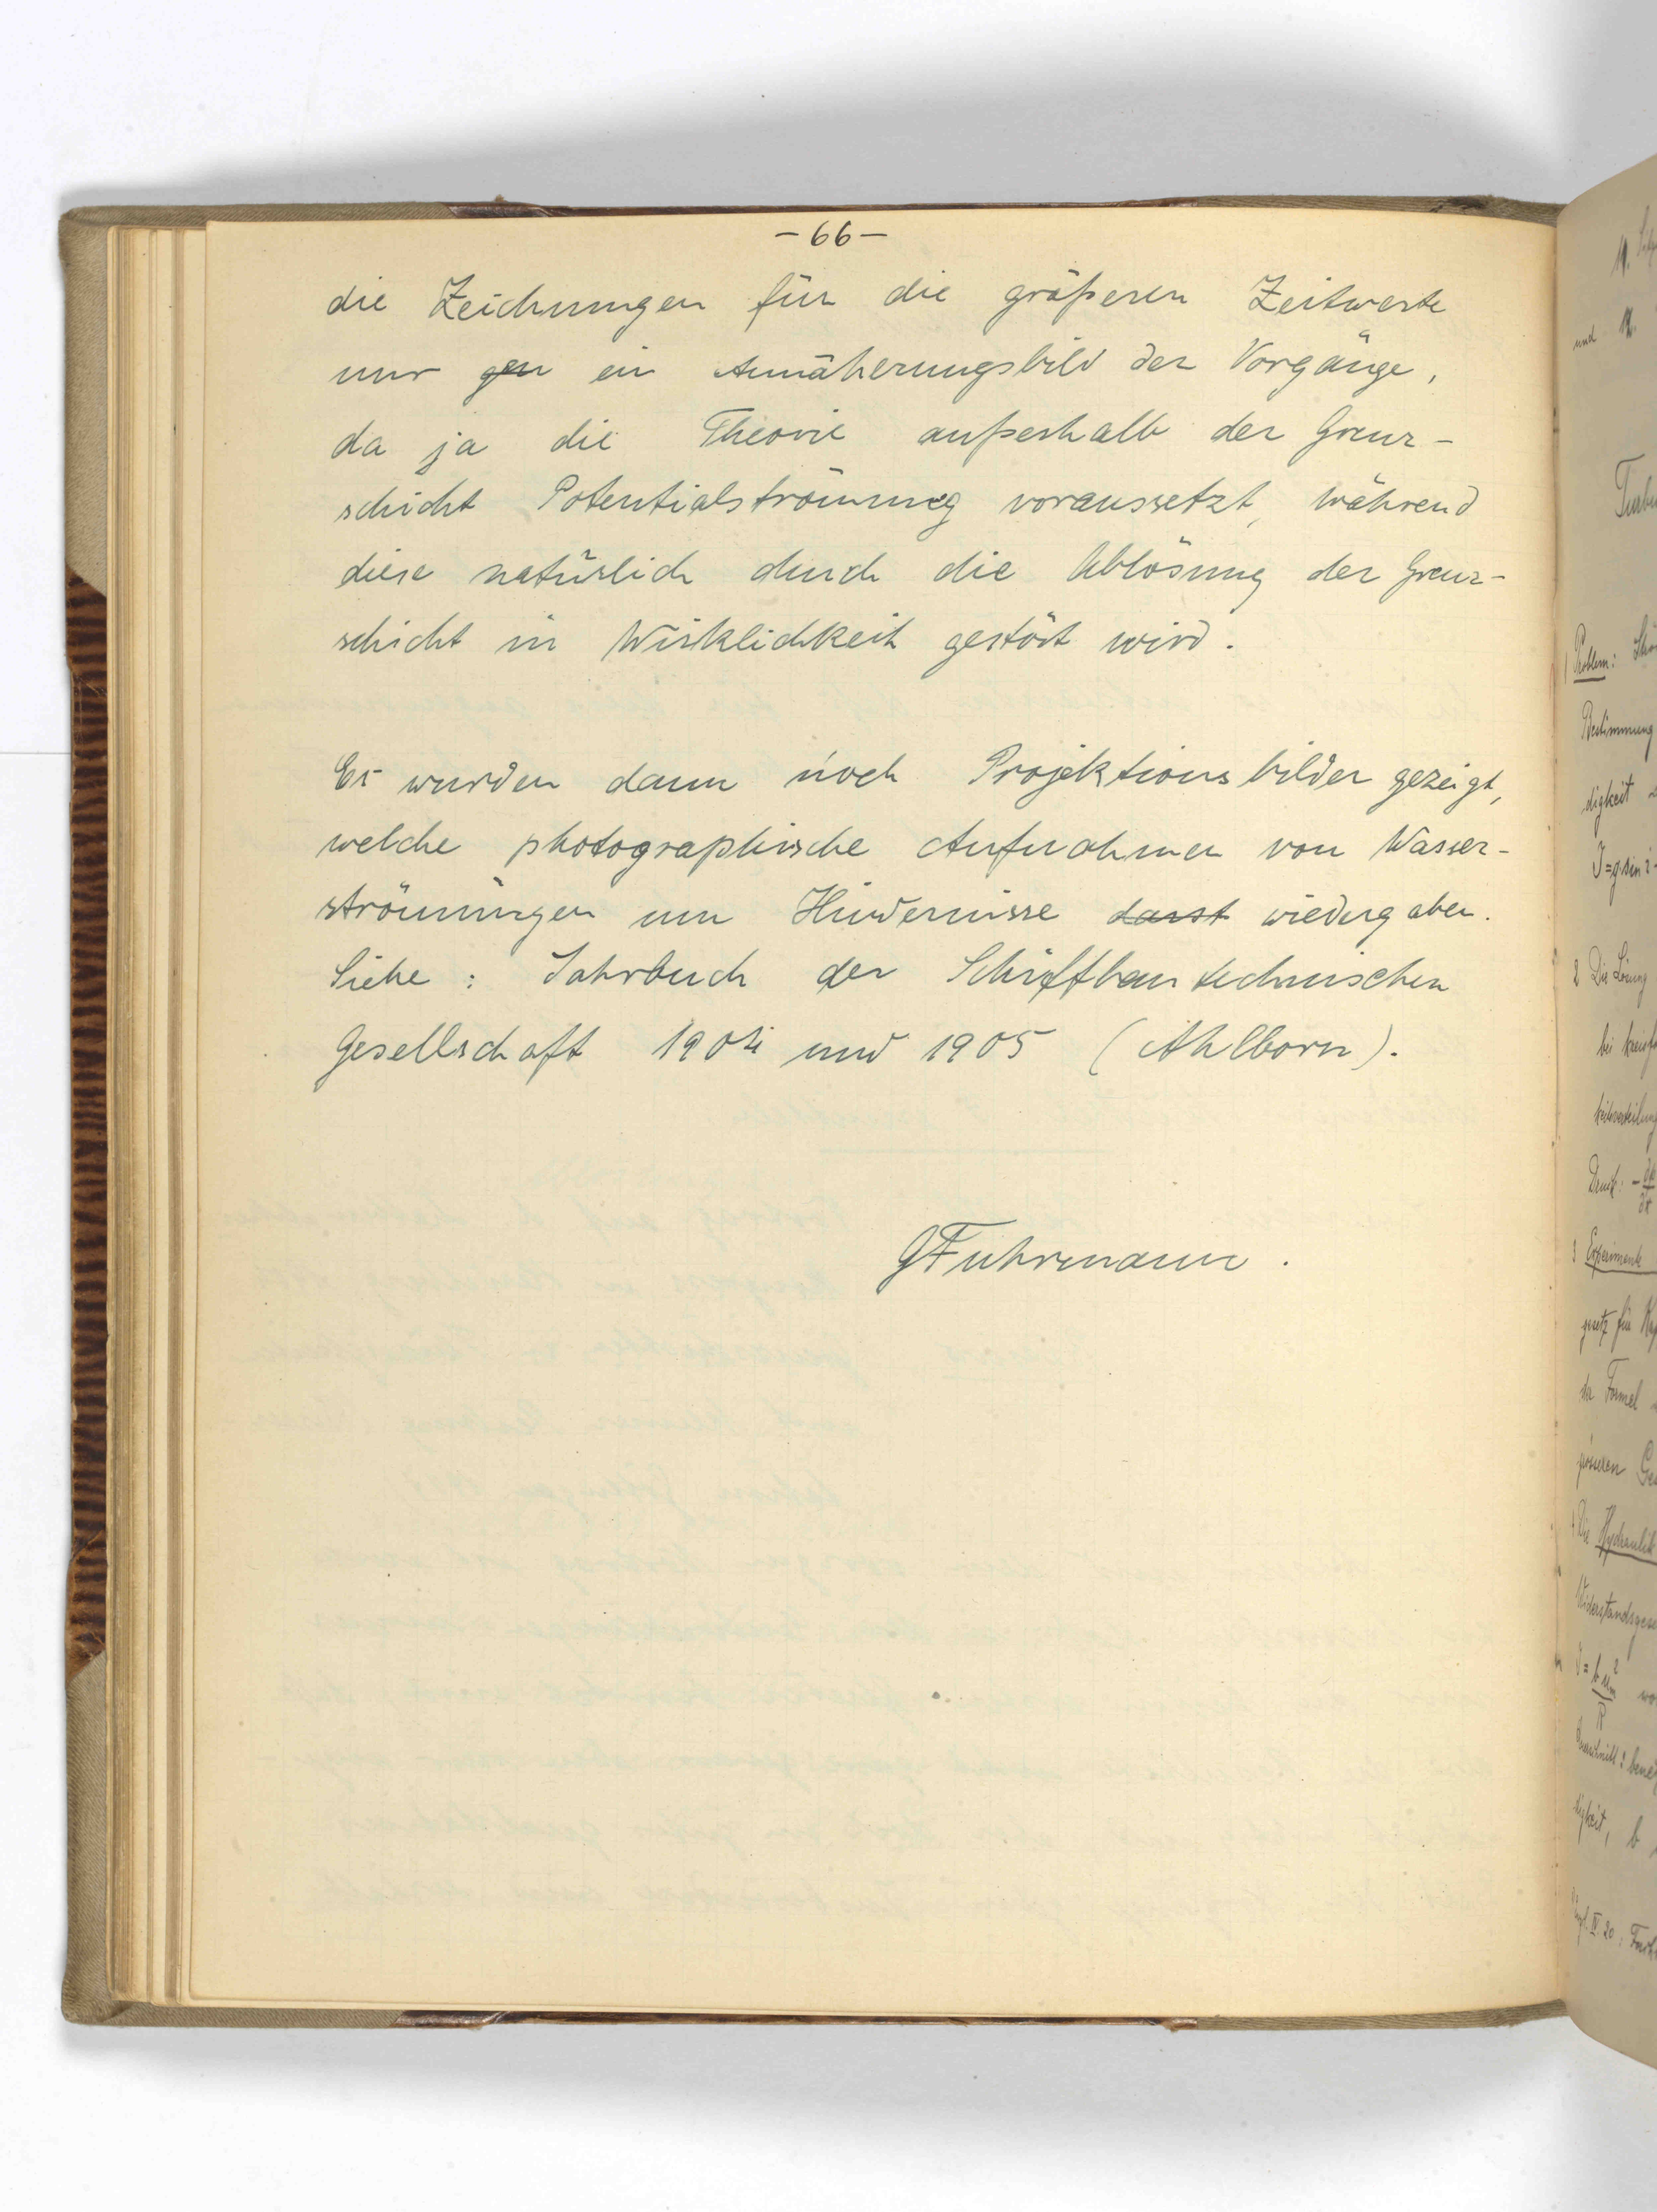 - 66 -
die Zeichnungen für die größeren Zeitwerte
nur gen ein Annäherungsbild der Vorgänge,
da ja die Theorie außerhalb der Grenz-
schicht Potentialströmung voraussetzt, während
diese natürlich durch die Ablösung der Grenz-
schicht in Wirklichkeit gestört wird.
Es wurden dann noch Projektionsbilder gezeigt,
welche photographische Aufnahmen von Wasser-
strömungen um Hindernisse darst wiedergaben.
Siehe: Jahrbuch der Schiffbautechnischen
Gesellschaft 1904 und 1905 (Ahlborn).
GFuhrmann.
11.
und 12.
Problem:
Bestimmung
digkeit
J=g sin i
2 Die Lösung
bei
3 Experimente
gesetz für
der Formel
grösseren
Die Hydraulik
digkeit, b
IV 20: